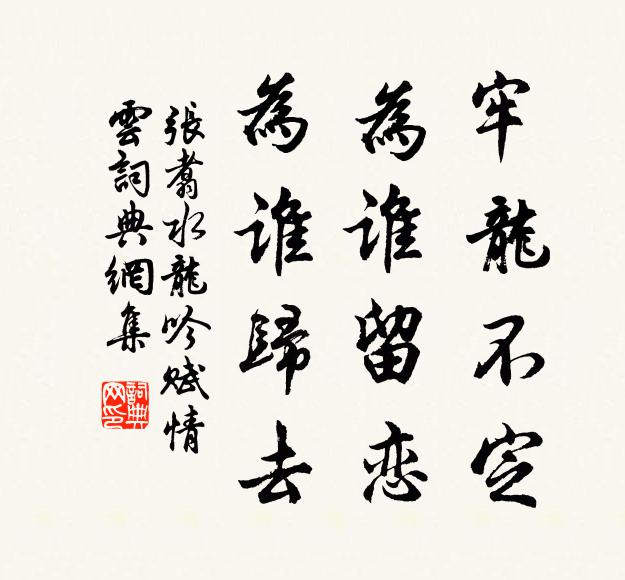 牢龍不定
為誰留恋
為誰歸去
張翥水龍吟賦情
雲詞典網集
詞典網印